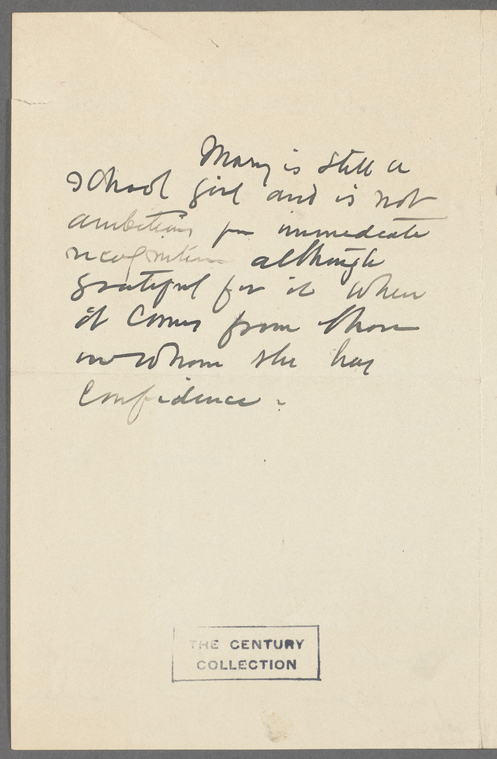 Mary is still a
school girl and is not
ambitious for immediate
recognition although
grateful for it when
it comes from those
in whom she has
confidence.
THE CENTURY
COLLECTION